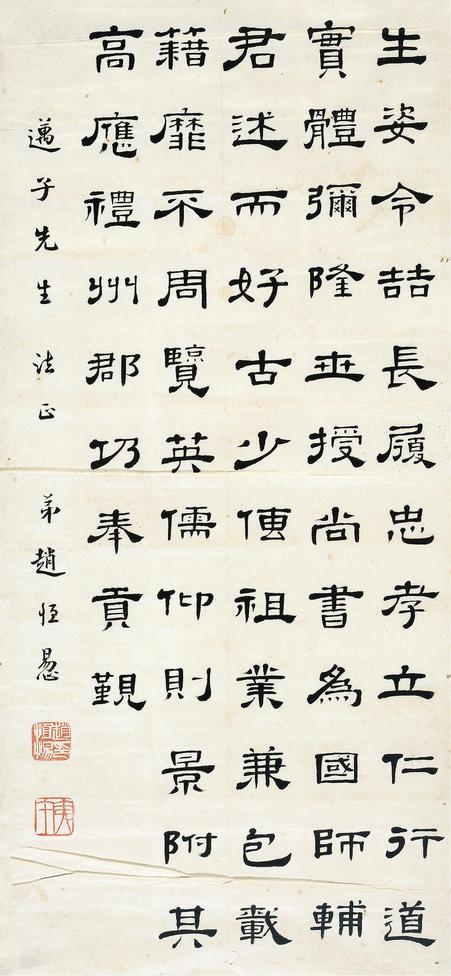 生姿令喆長履忠孝立仁行道
實體彌隆世授尚書為國師輔
君述而好古少傳祖業兼包載
籍靡不周覽英儒仰則景附其
高應禮州郡仍奉貢覲
邁子先生 法正 弟趙恒惖